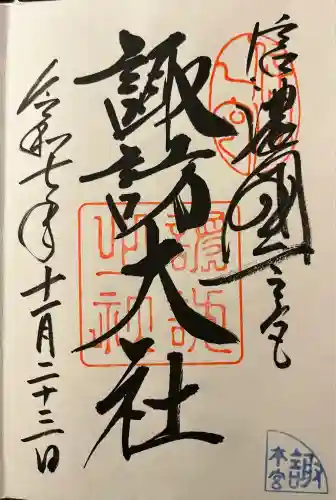 信濃國一之宮
諏訪大社
令和七年十一月二十三日
諏
本宮